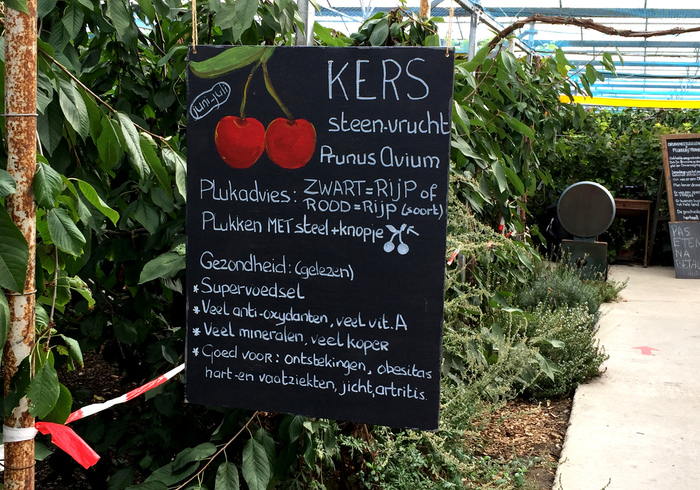 Juni-Juli
KERS
steen-vrucht
Prunus Avium
Plukadvies: ZWART=RIJP of
ROOD=RIJP (soort)
Plukken MET steel+knopje
Gezondheid: (gelezen)
* Supervoedsel
* Veel anti-oxydanten, veel vit. A
* Veel mineralen, veel koper
* Goed voor: ontstekingen, obesitas
hart-en vaatziekten, jicht, artritis.
PAS
ETEN
NA